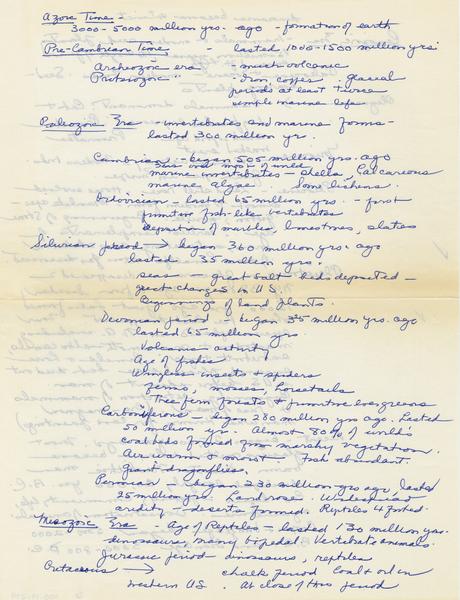 Azoic Time -
3000-5000 million yrs. ago - formation of earth
Pre-Cambrian Time - lasted 1000-1500 million yrs.
Archeozoic era - much volcanic
Proterozoic " - Iron, copper. Glacial
periods at least twice
simple marine life
Paleozoic Era - invertebrates and marine forms -
lasted 300 million yr.
Cambrian - began 505 million yrs. ago
Seas over most of world
marine invertebrates - shells, Calcareous
marine algae. Some lichens.
Ordovician - lasted 65 million yrs. - first
primitive fish-like vertebrates
deposition of marbles, limestones, slates
Silurian period → began 360 million yrs. ago
lasted 35 million yrs.
seas - great salt beds deposited -
great changes in U.S.
Beginnings of land plants.
Devonian period - began million yrs. ago
lasted 65 million yrs.
Volcanic activity
Age of fishes
Wingless insects & spiders
ferns, mosses, horsetails
Tree fern forests & primitive evergreens
Carboniferous - began 280 million yrs ago. Lasted
50 million yrs. Almost 80% of world's
coal beds formed from marshy vegetation.
Air warm & moist. Fish abundant.
Giant dragonflies.
Permian - began 230 million yrs ago, lasted
25 million yrs. Land rose. Widespread
aridity - deserts formed. Reptiles 4 footed.
Mesozoic Era - Age of Reptiles - lasted 130 million yrs.
dinosaurs, many bipedal. Vertebrate animals.
Jurassic period dinosaurs, reptiles
Cretaceous → chalk period Coal & oil in
western US. At close of this period